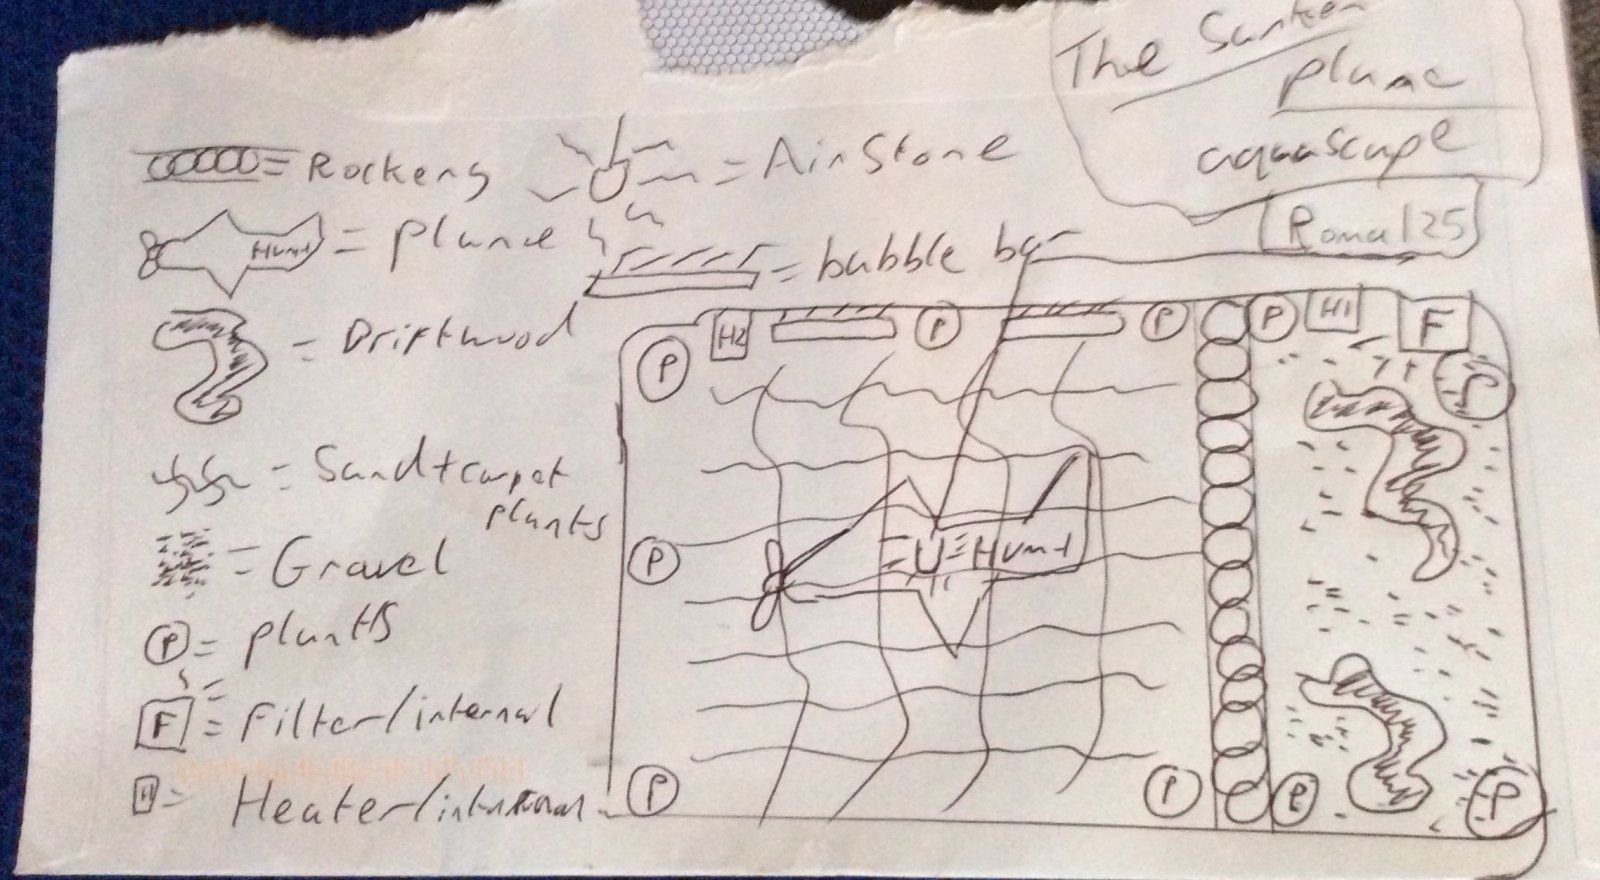 The Sunken
plane
aquascape
Roma 125
= Rockery
= AirStone
Hunt
= plane
= bubble bar
= Driftwood
= Sand + carpet
plants
= Gravel
P = plants
F = Filter/internal
H = Heater/internal
H2
P
P
P
H1
F
P
P
U Hunt
P
P
P
P